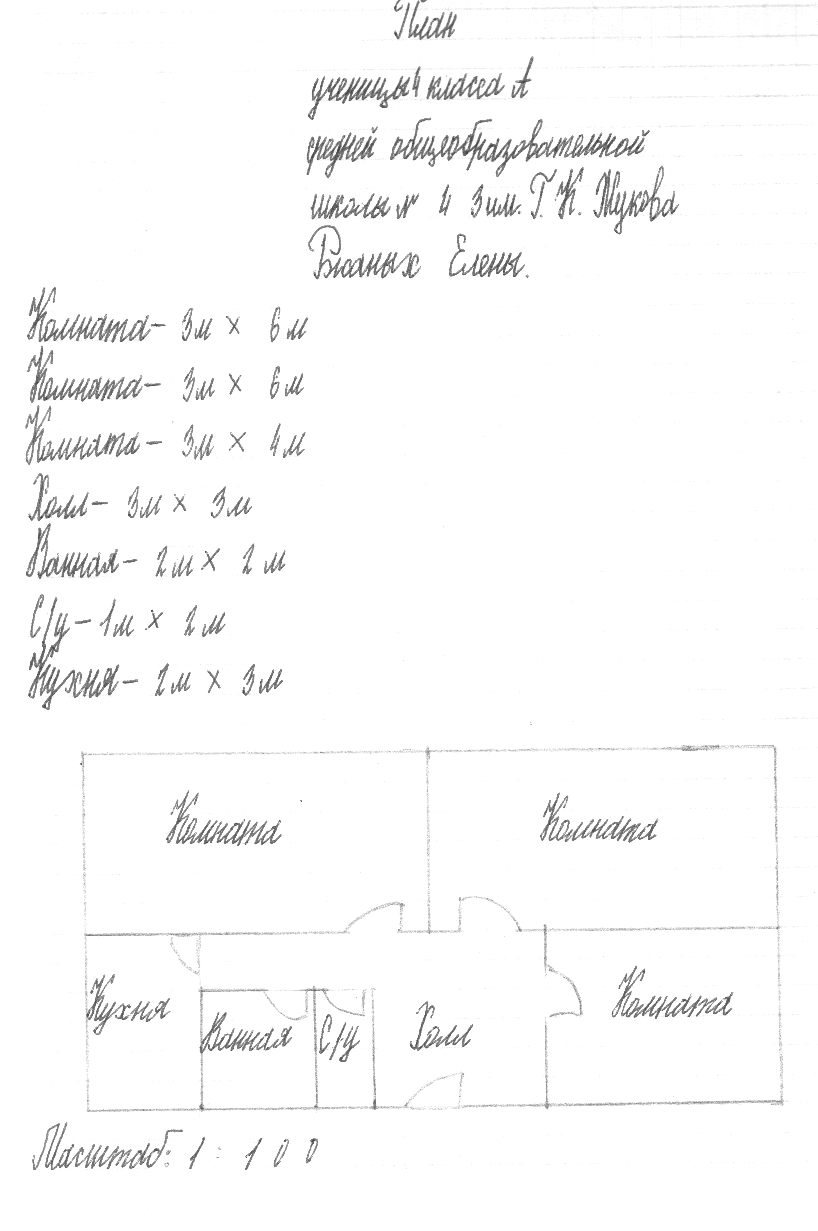 План
ученицы 4 класса А
средней общеобразовательной
школы № 4 3 им. Г. К. Жукова
Елены.
Комната – 3м × 6м
Комната – 3м × 6м
Комната – 3м × 4м
Холл – 3м × 3м
Ванная – 2м × 2м
С/у – 1м × 2м
Кухня – 2м × 3м
Комната
Комната
Кухня
Ванная
С/у
Холл
Комната
Масштаб: 1 : 1 0 0